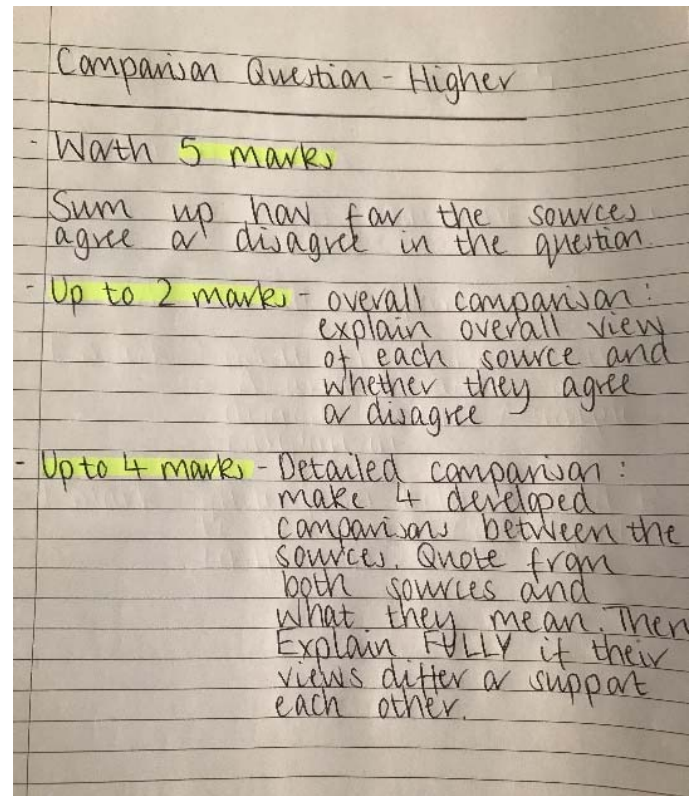 Comparison Question - Higher
- Worth 5 marks
Sum up how far the sources
agree or disagree in the question.
- Up to 2 marks - overall comparison:
explain overall view
of each source and
whether they agree
or disagree
- Up to 4 marks - Detailed comparison:
make 4 developed
comparisons between the
sources. Quote from
both sources and
what they mean. Then
Explain FULLY if their
views differ or support
each other.